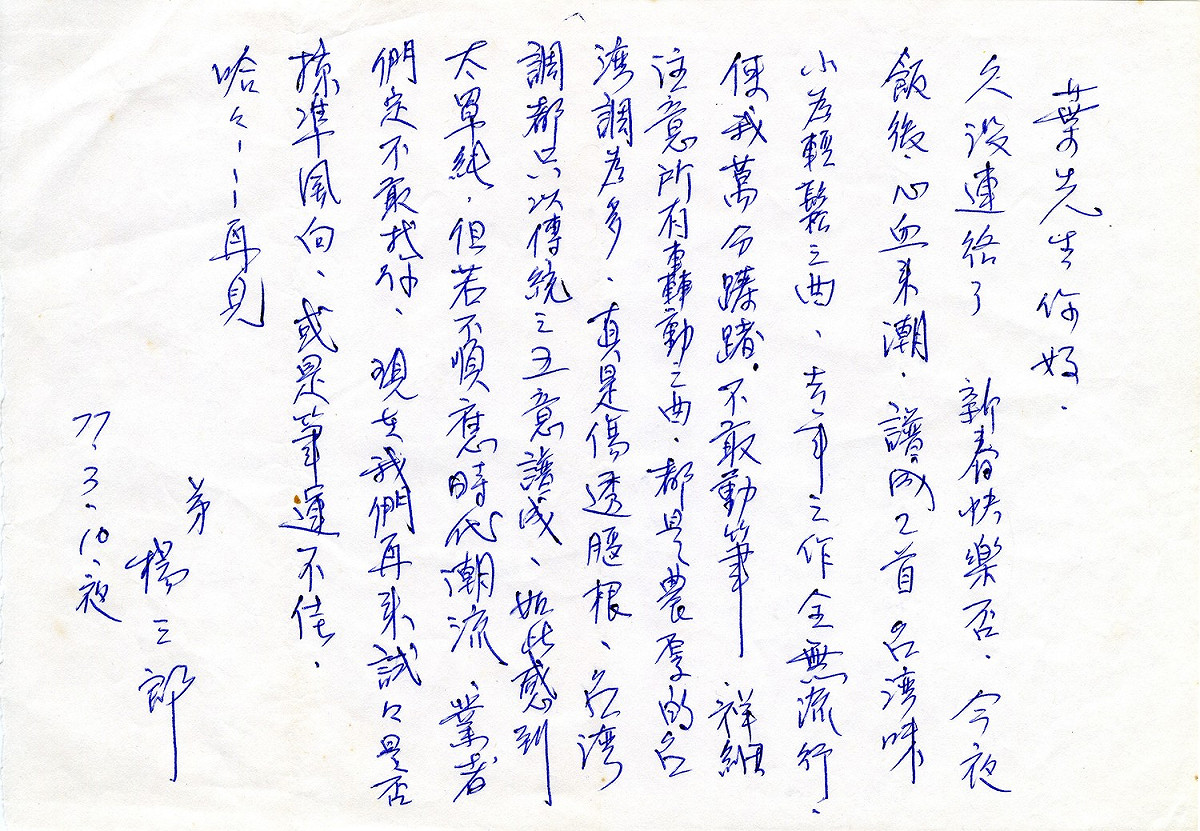 葉先生你好.
久没連絡了 新春快樂否、今夜
飯後、心血来潮、譜成2首台湾味
小為輕鬆之曲、去年之作全無流行、
使我萬分躊躇、不敢動筆 祥細
注意所有轟動之曲、都是農厚的台
湾調為多、真是傷透腦根、台湾
調都只以傳統之五意譜成、如此感到
太單純、但若不順應時代潮流、業者
們定不敢找你、現在我們再来試々是否
探準風向、或是筆運不佳、
哈々---再見
弟 楊三郎
77.3.10.夜